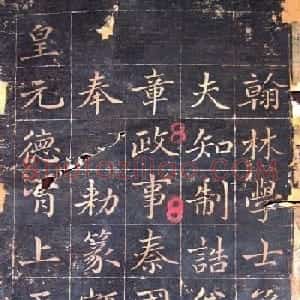 翰林學士
夫知制誥
章政事秦
奉勅篆
皇元德上
8
8